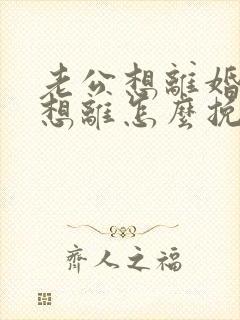 老公想離婚
想離怎麼挽
齊人之福